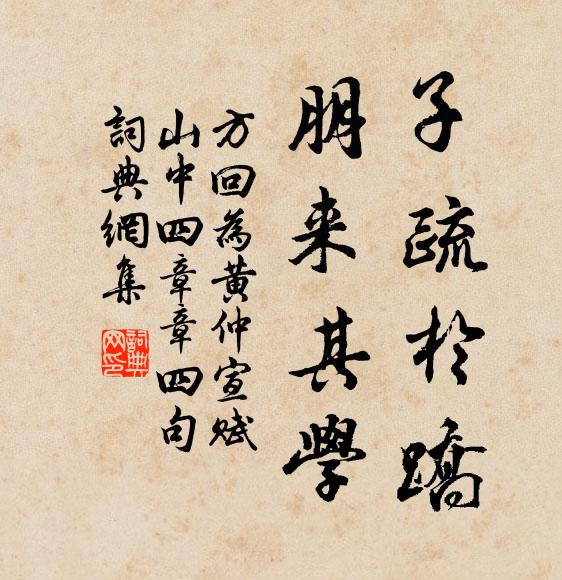 子疏於蹻
朋来其學
方回為黄仲宣賦
山中四章章四句
詞典網集
詞典
网印